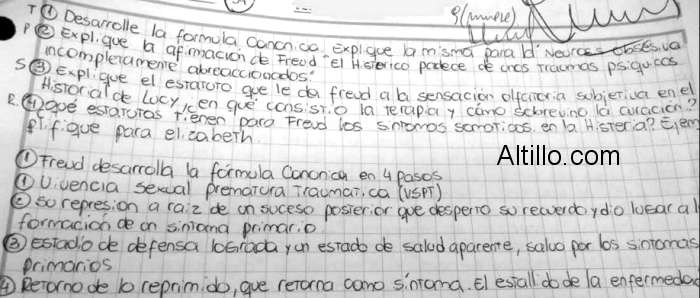 9(muere)
T ① Desarrolle la formula canonica, explique la misma para la Neurosis obsesiva
P ② Explique la afirmación de Freud "El Histerico padece de unos traumas psiquicos
incompletamente abreaccionados".
S ③ Explique el estatuto que le da freud a la sensación olfatoria subjetiva en el
Historial de Lucy, en que consistio la terapia y cómo sobrevino la curación.
R ④ Qué estatutos tienen para Freud los sintomas somaticos en la Histeria? Ejem
plifique para elizabeth.
Altillo.com
① Freud desarrolla la fórmula Canonica en 4 pasos
① Vivencia sexual prematura Traumatica (VSPT)
② su represión a raíz de un suceso posterior que desperto su recuerdo y dio lugar a l
formación de un sintoma primario
③ estadio de defensa lograda y un estado de salud aparente, salvo por los sintomas
primarios
④ Retorno de lo reprimido, que retorna como síntoma. El estallido de la enfermedad